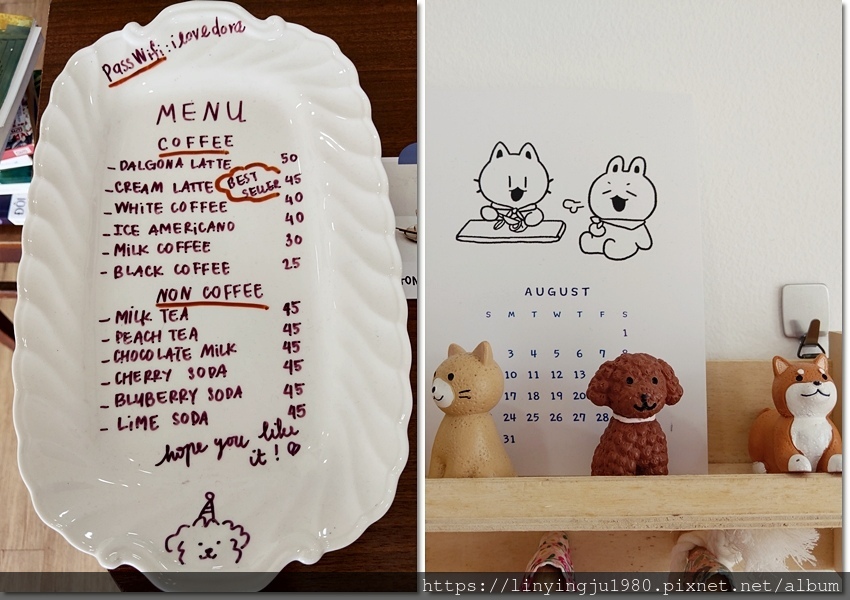 Pass Wifi: ilovedora
MENU
COFFEE
- DALGONA LATTE 50
- CREAM LATTE BEST SELLER 45
- WHITE COFFEE 40
- ICE AMERICANO 40
- MILK COFFEE 30
- BLACK COFFEE 25
NON COFFEE
- MILK TEA 45
- PEACH TEA 45
- CHOCOLATE MILK 45
- CHERRY SODA 45
- BLUBERRY SODA 45
- LIME SODA 45
hope you like
it!
AUGUST
S M T W T F S
1
3 4 5 6 7 8
10 11 12 13
17 18 19 20
24 25 26 27 28
31
https://linyingju1980.pixnet.net/album